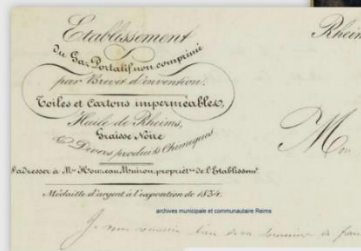 Etablissement
du Gaz Portatif non comprimé
par Brevet d'invention.
Toiles et Cartons imperméables,
Huile de Rheims,
Graisse Noire
& Divers produits Chimiques
S'adresser à Mr. Houzeau Muiron, propriétre de l'Etablissemt
Médaille d'argent à l'exposition de 1834.
archives municipale et communautaire Reims
Rheim
M
Je